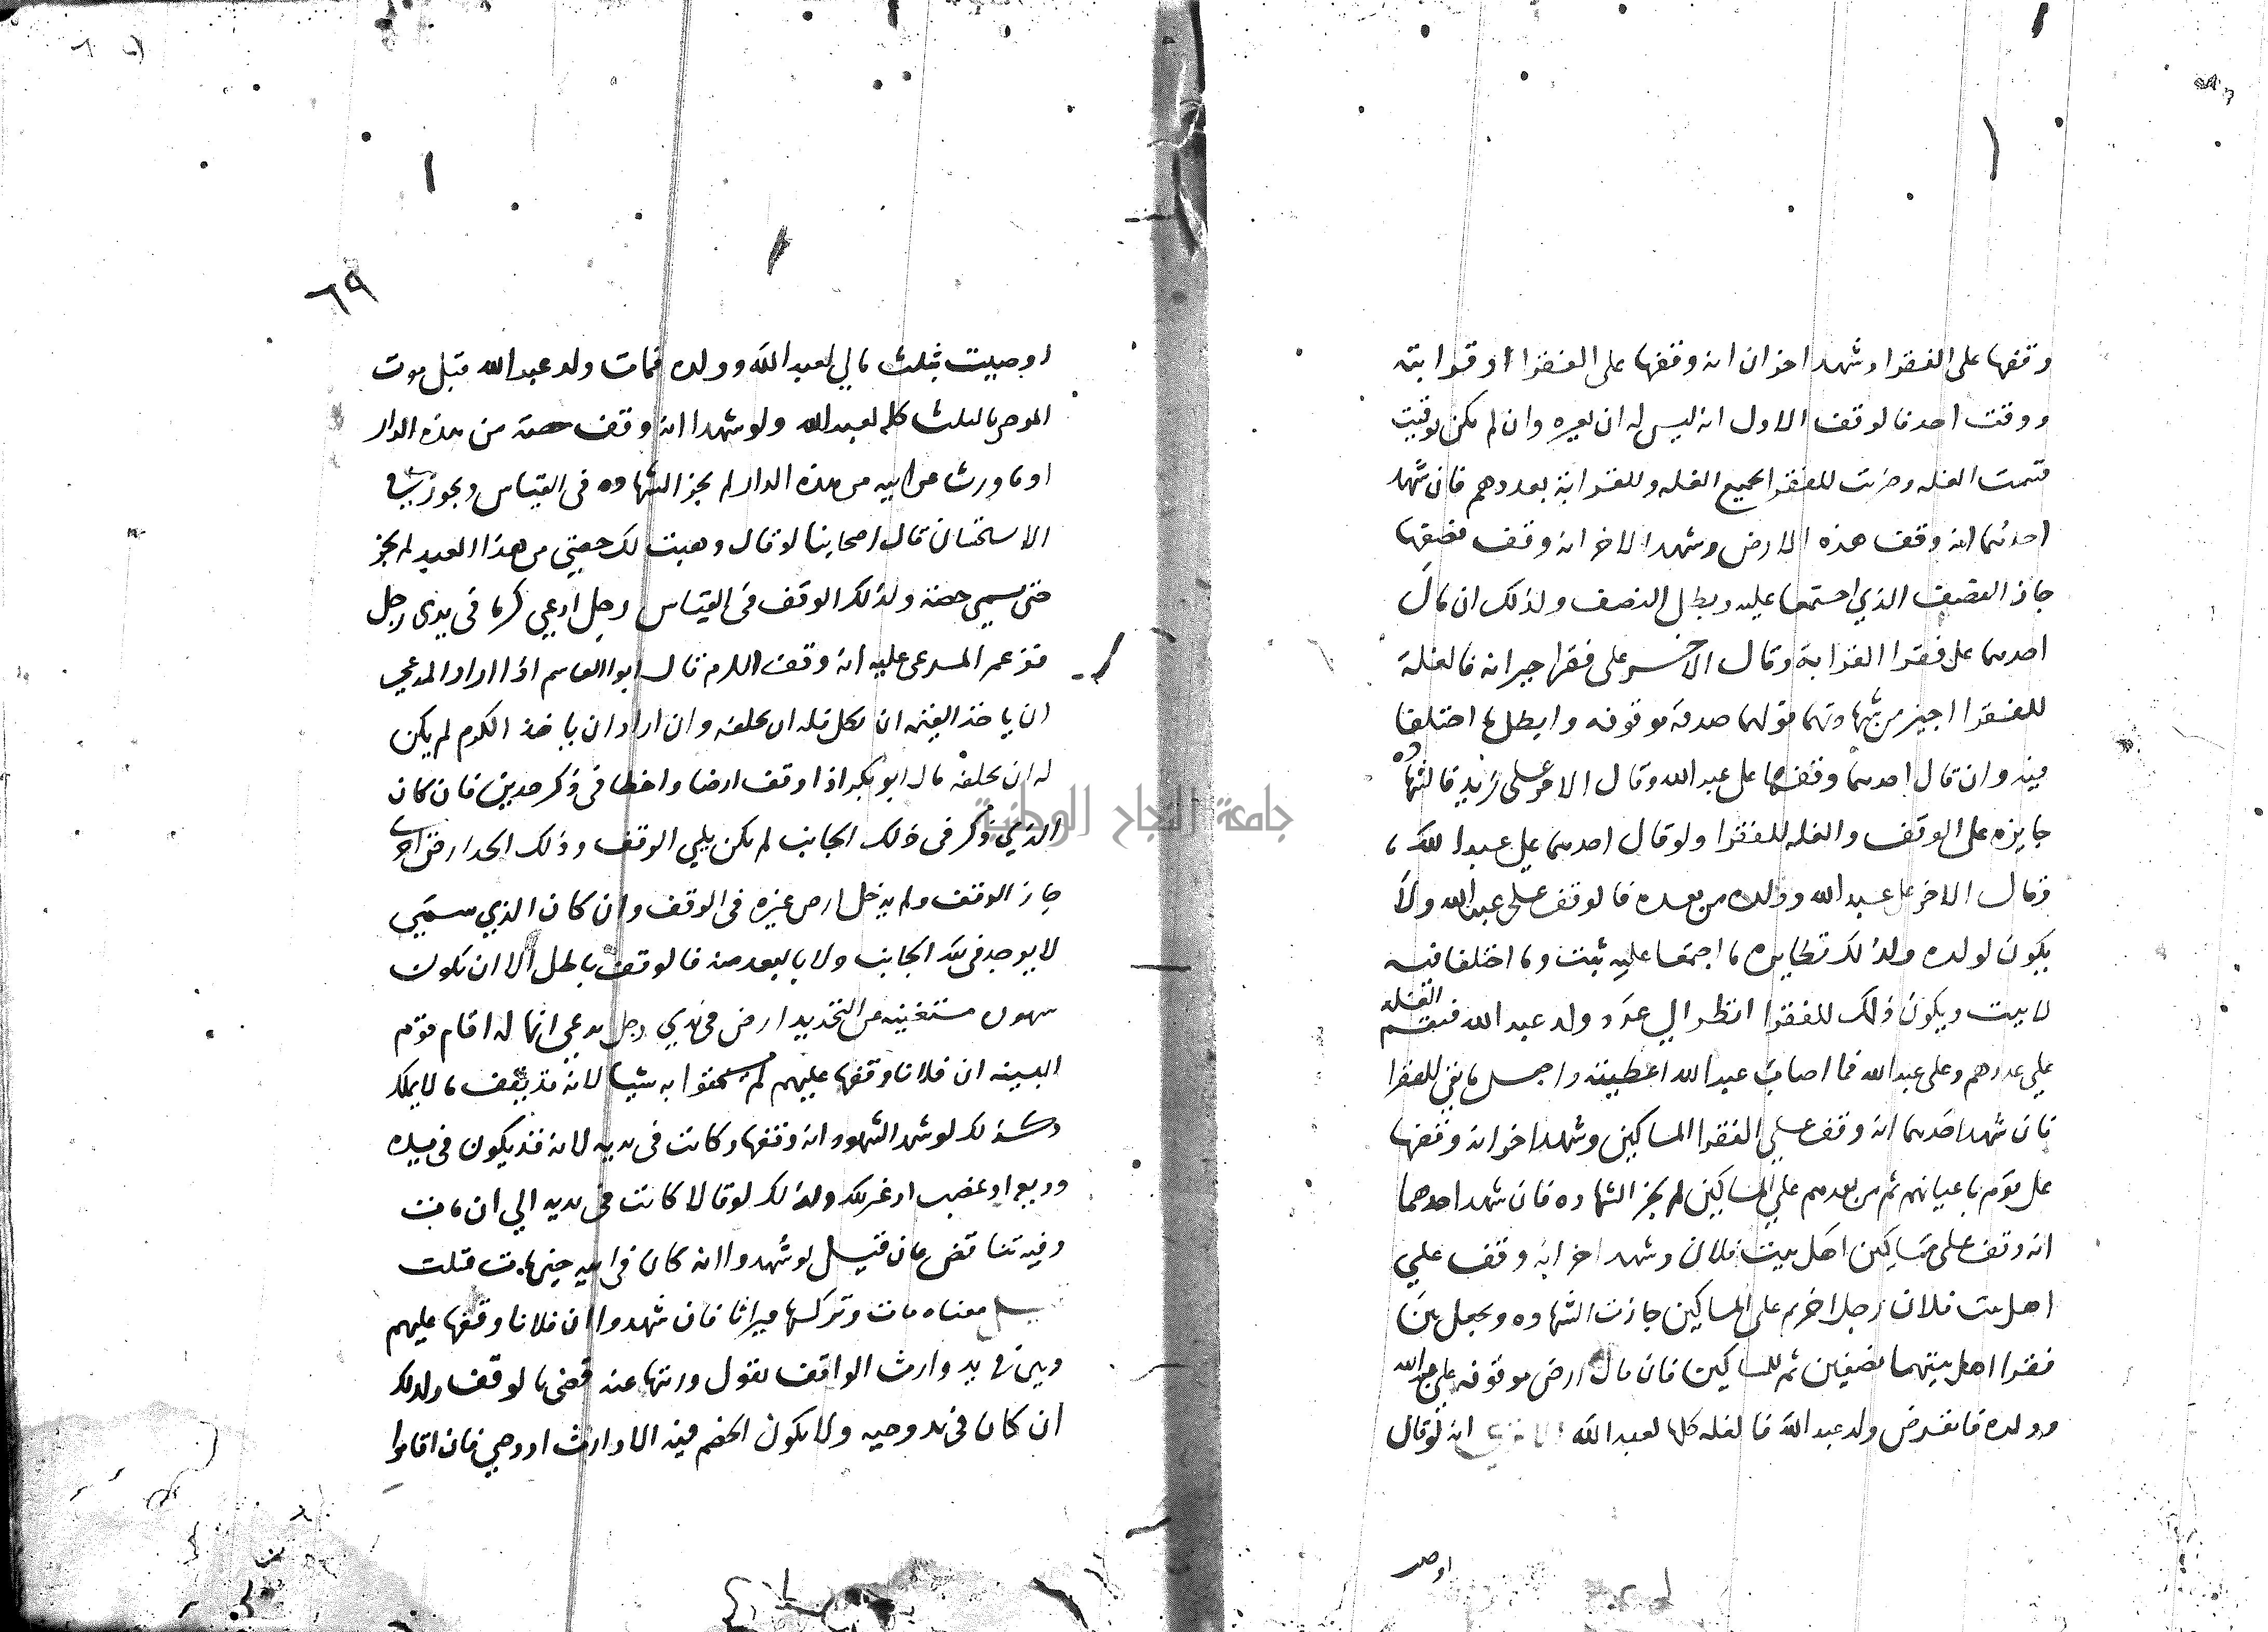 وقفها على الفقرا وشهد اخران انه وقفها على الفقرا او قرابته
ووقت احد فالوقف الاول انه ليس له ان يغيره وان لم يكن توقيت
قسمت الغله وضربت للفقرا بجميع الغله وللقرابة بعددهم فان شهد
احدهما انه وقف هذه الارض وشهد الاخر انه وقف نصفها
جاز النصف الذي اجتمعا عليه وبطل النصف ولذلك ان قال
احدهما على فقرا القرابة وقال الاخر على فقرا جيرانه فالغلة
للفقرا اجيز من شهادتهما قولهما صدقة موقوفه وابطل ما اختلفا
فيه وان قال احدهما وقفها على عبد الله وقال الاخر على زيد فالشهادة
جايزه على الوقف والغله للفقرا ولو قال احدهما علي عبد الله
وقال الاخر على عبد الله وولده من بعده فالوقف على عبد الله ولا
يكون لولده ولذلك نظايره ما اجتمعا عليه ثبت وما اختلفا فيه
لا يثبت ويكون ذلك للفقرا انظر الي عدد ولد عبد الله فتقسم الغله
علي عددهم وعلى عبد الله فما اصاب عبد الله اعطيته واجعل ما بقي للفقرا
فان شهد احدهما انه وقف علي الفقرا المساكين وشهد اخر انه وقفها
على قوم باعيانهم ثم من بعدهم علي المساكين لم يجز الشهاده فان شهد احدهما
انه وقف على مساكين اهل بيت فلان وشهد اخر انه وقف علي
اهل بيت فلان رجل اخر ثم على المساكين جازت الشهاده ويجعل بين
فقرا اهل بيتهما نصفين ثم للمساكين فان قال ارض موقوفه على عبد الله
وولده فانقرض ولد عبد الله فالغله كلها لعبد الله الا ترى انه لو قال
اوصيت
٦٩
اوصيت بثلث مالي لعبد الله وولده فمات ولد عبد الله قبل موت
الموصي فالثلث كله لعبد الله ولو شهدا انه وقف حصته من هذه الدار
او ما ورث عن ابيه من هذه الدار لم يجز الشهاده في القياس ويجوز في
الاستحسان قال اصحابنا لو قال وهبت لك حصتي من هذا العبد لم يجز
حتى يسمي حصته ولذلك الوقف في القياس رجل ادعي كرما في يدي رجل
فزعم المدعى عليه انه وقف الكرم قال ابو القاسم اذا اراد المدعي
ان ياخذ القيمه ان نكل فله ان يحلفه وان اراد ان ياخذ الكرم لم يكن
له ان يحلفه قال ابو بكر اذا وقف ارضا واخطا في ذكر حدين فان كان
الذي ذكر في ذلك الجانب لم يكن يلي الوقف وذلك الحد ارض اخرى
جاز الوقف ولم يدخل ارض غيره في الوقف وان كان الذي سمي
لا يوجد في تلك الجانب ولا بالبعد منه فالوقف باطل الا ان تكون
مشهوره مستغنيه عن التحديد ارض في يدي رجل يدعي انها له اقام قوم
البينه ان فلانا وقفها عليهم لم يستحقوا به شيا لانه قد يقف ما لا يملك
وكذلك لو شهد الشهود انه وقفها وكانت في يديه لانه قد يكون في يده
وديعه او غصب او غير ذلك ولذلك لو قالا كانت في يديه الي ان مات
وفيه تناقض فان قيل لو شهدوا انه كان في يديه حين مات قبلت
قيل معناه مات وتركها ميراثا فان شهدوا ان فلانا وقفها عليهم
وهي في يد وارث الواقف يقول ورثتها عنه قضي بالوقف ولذلك
ان كان في يد وصيه ولا يكون الخصم فيه الا وارث او وصي فان اقاموا
جامعة النجاح الوطنية